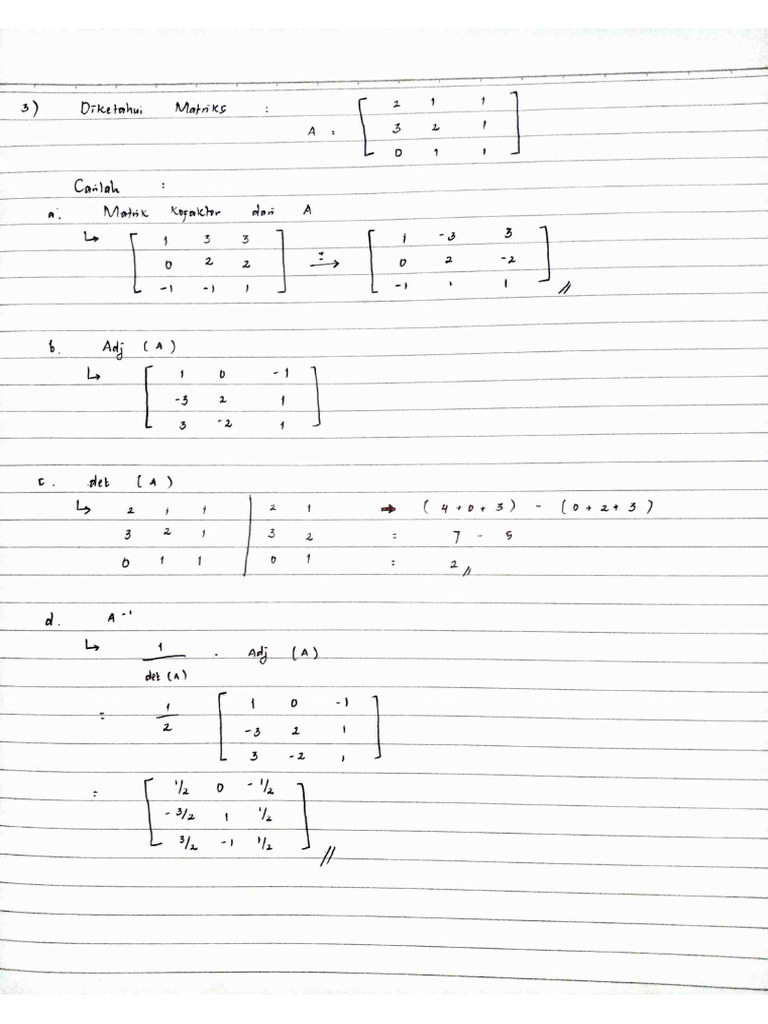 3) Diketahui Matriks :
A = [ 2 1 1
3 2 1
0 1 1 ]
Carilah :
a. Matrik Kofaktor dari A
↳ [ 1 3 3
0 2 2
-1 -1 1 ] ±→ [ 1 -3 3
0 2 -2
-1 1 1 ] //
b. Adj (A)
↳ [ 1 0 -1
-3 2 1
3 -2 1 ]
c. det (A)
↳ 2 1 1 | 2 1 ⇒ (4+0+3) - (0+2+3)
3 2 1 | 3 2 = 7 - 5
0 1 1 | 0 1 = 2 //
d. A⁻¹
↳ 1/det(A) . Adj (A)
= 1/2 [ 1 0 -1
-3 2 1
3 -2 1 ]
= [ 1/2 0 -1/2
-3/2 1 1/2
3/2 -1 1/2 ] //